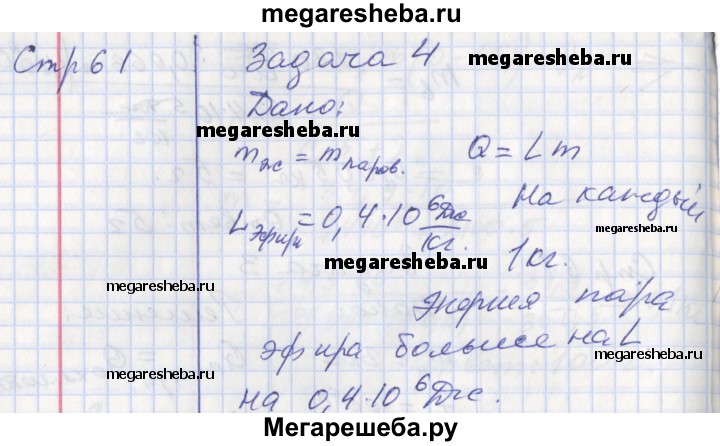 megaresheba.ru
Стр 61
Задача 4
megaresheba.ru
Дано:
megaresheba.ru
m ж = m паров.
Q = L m
L эфира = 0,4·10⁶ Дж/кг.
На каждый
megaresheba.ru
megaresheba.ru
1 кг.
megaresheba.ru
Энергия пара
эфира больше на L
megaresheba.ru
megaresheba.ru
на 0,4·10⁶ Дж.
megaresheba.ru
Мегарешеба.ру